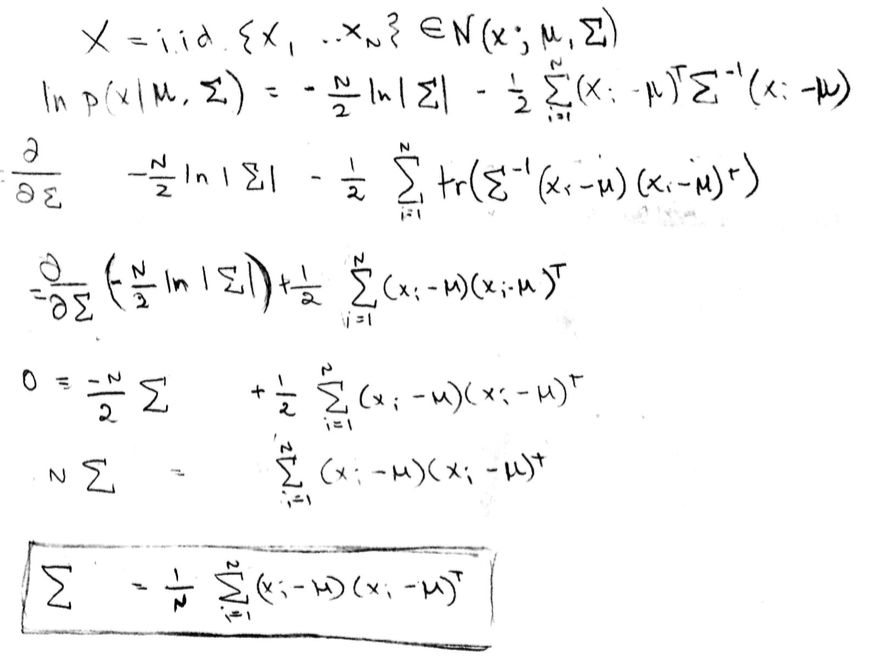 X = i.i.d. {x₁ ..x_N} ∈ N(x; μ, Σ)
ln p(x|μ, Σ) = - N/2 ln|Σ| - 1/2 Σ_{i=1}^{N} (xᵢ - μ)ᵀ Σ⁻¹ (xᵢ - μ)
∂/∂Σ - N/2 ln|Σ| - 1/2 Σ_{i=1}^{N} tr(Σ⁻¹ (xᵢ - μ)(xᵢ - μ)ᵀ)
= ∂/∂Σ (- N/2 ln|Σ|) + 1/2 Σ_{i=1}^{N} (xᵢ - μ)(xᵢ - μ)ᵀ
0 = -N/2 Σ + 1/2 Σ_{i=1}^{N} (xᵢ - μ)(xᵢ - μ)ᵀ
N Σ = Σ_{i=1}^{N} (xᵢ - μ)(xᵢ - μ)ᵀ
Σ = 1/N Σ_{i=1}^{N} (xᵢ - μ)(xᵢ - μ)ᵀ